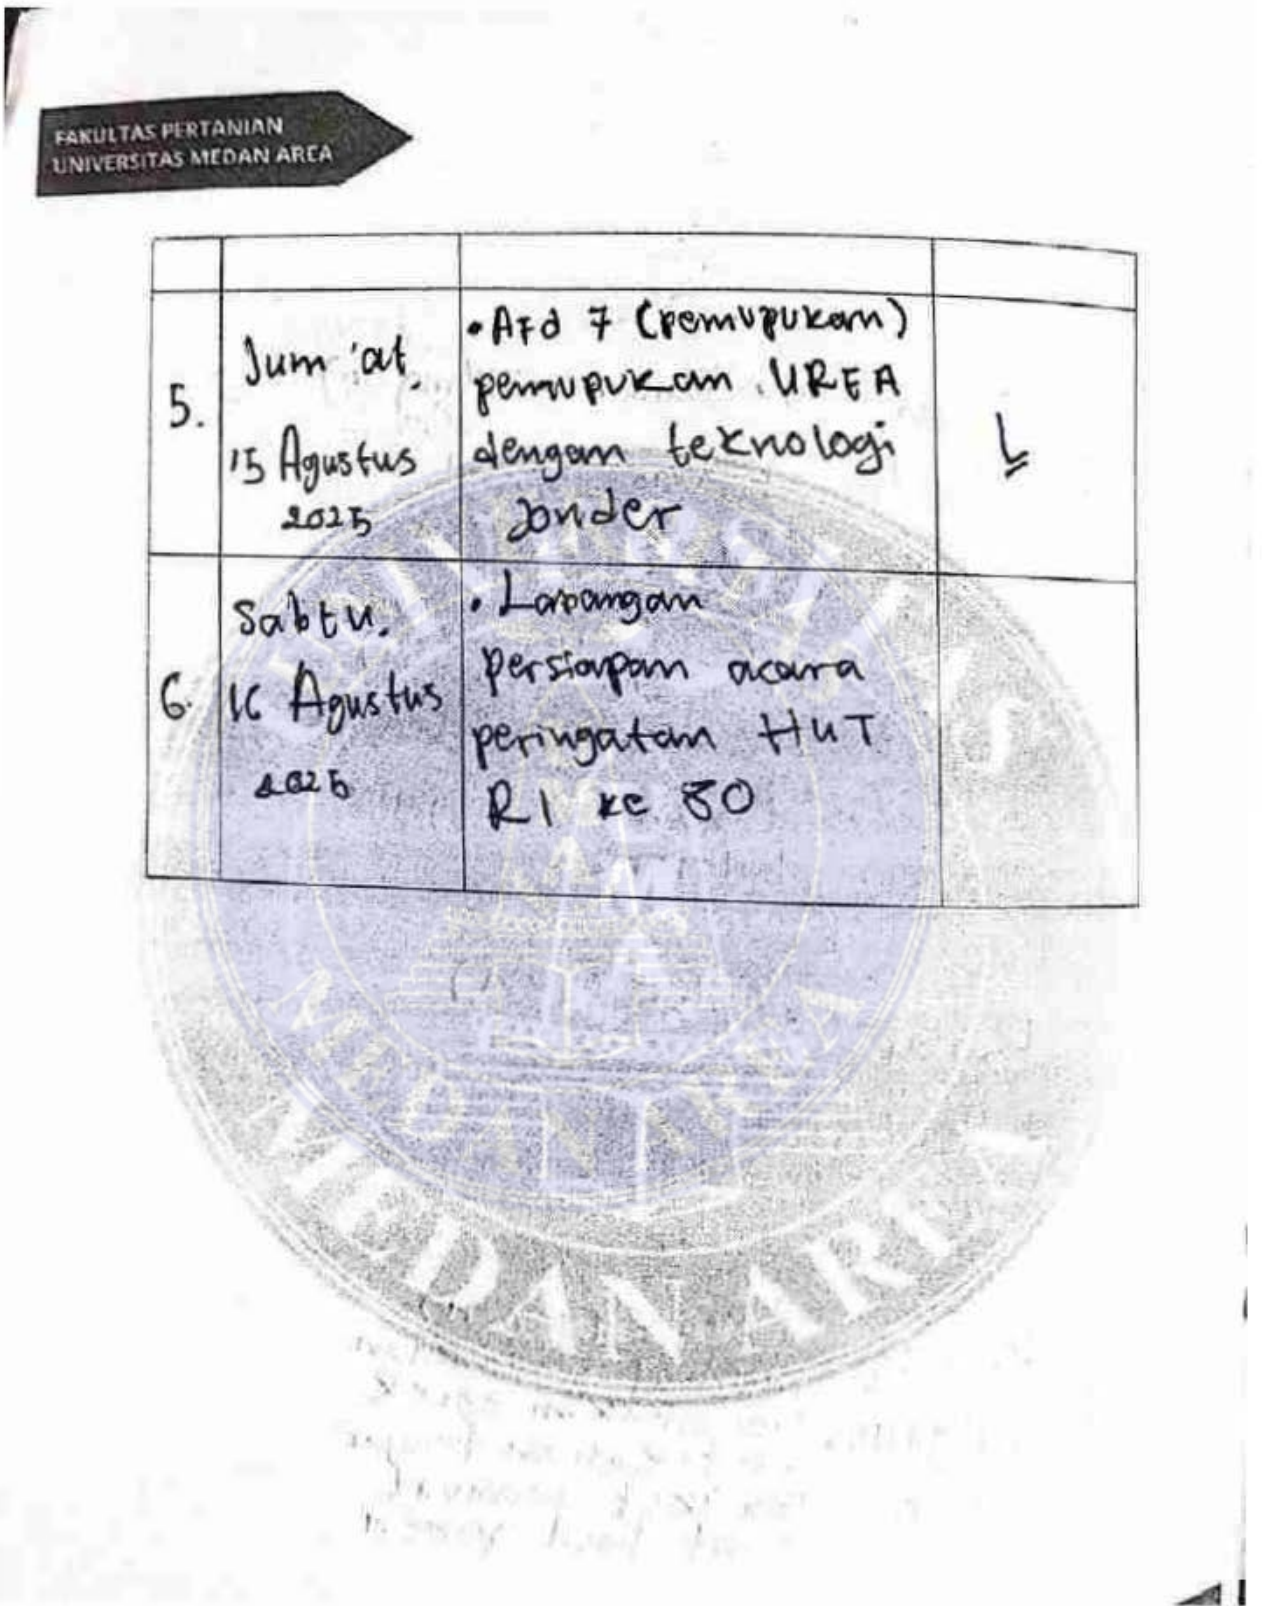 FAKULTAS PERTANIAN
UNIVERSITAS MEDAN AREA
5.
Jum'at,
15 Agustus
2025
• Afd 7 (pemupukan)
pemupukan UREA
dengan teknologi
Jonder
6.
Sabtu,
16 Agustus
2025
• Lapangan
persiapan acara
peringatan HUT
RI ke 80
UNIVERSITAS
MEDAN AREA
MEDAN AREA